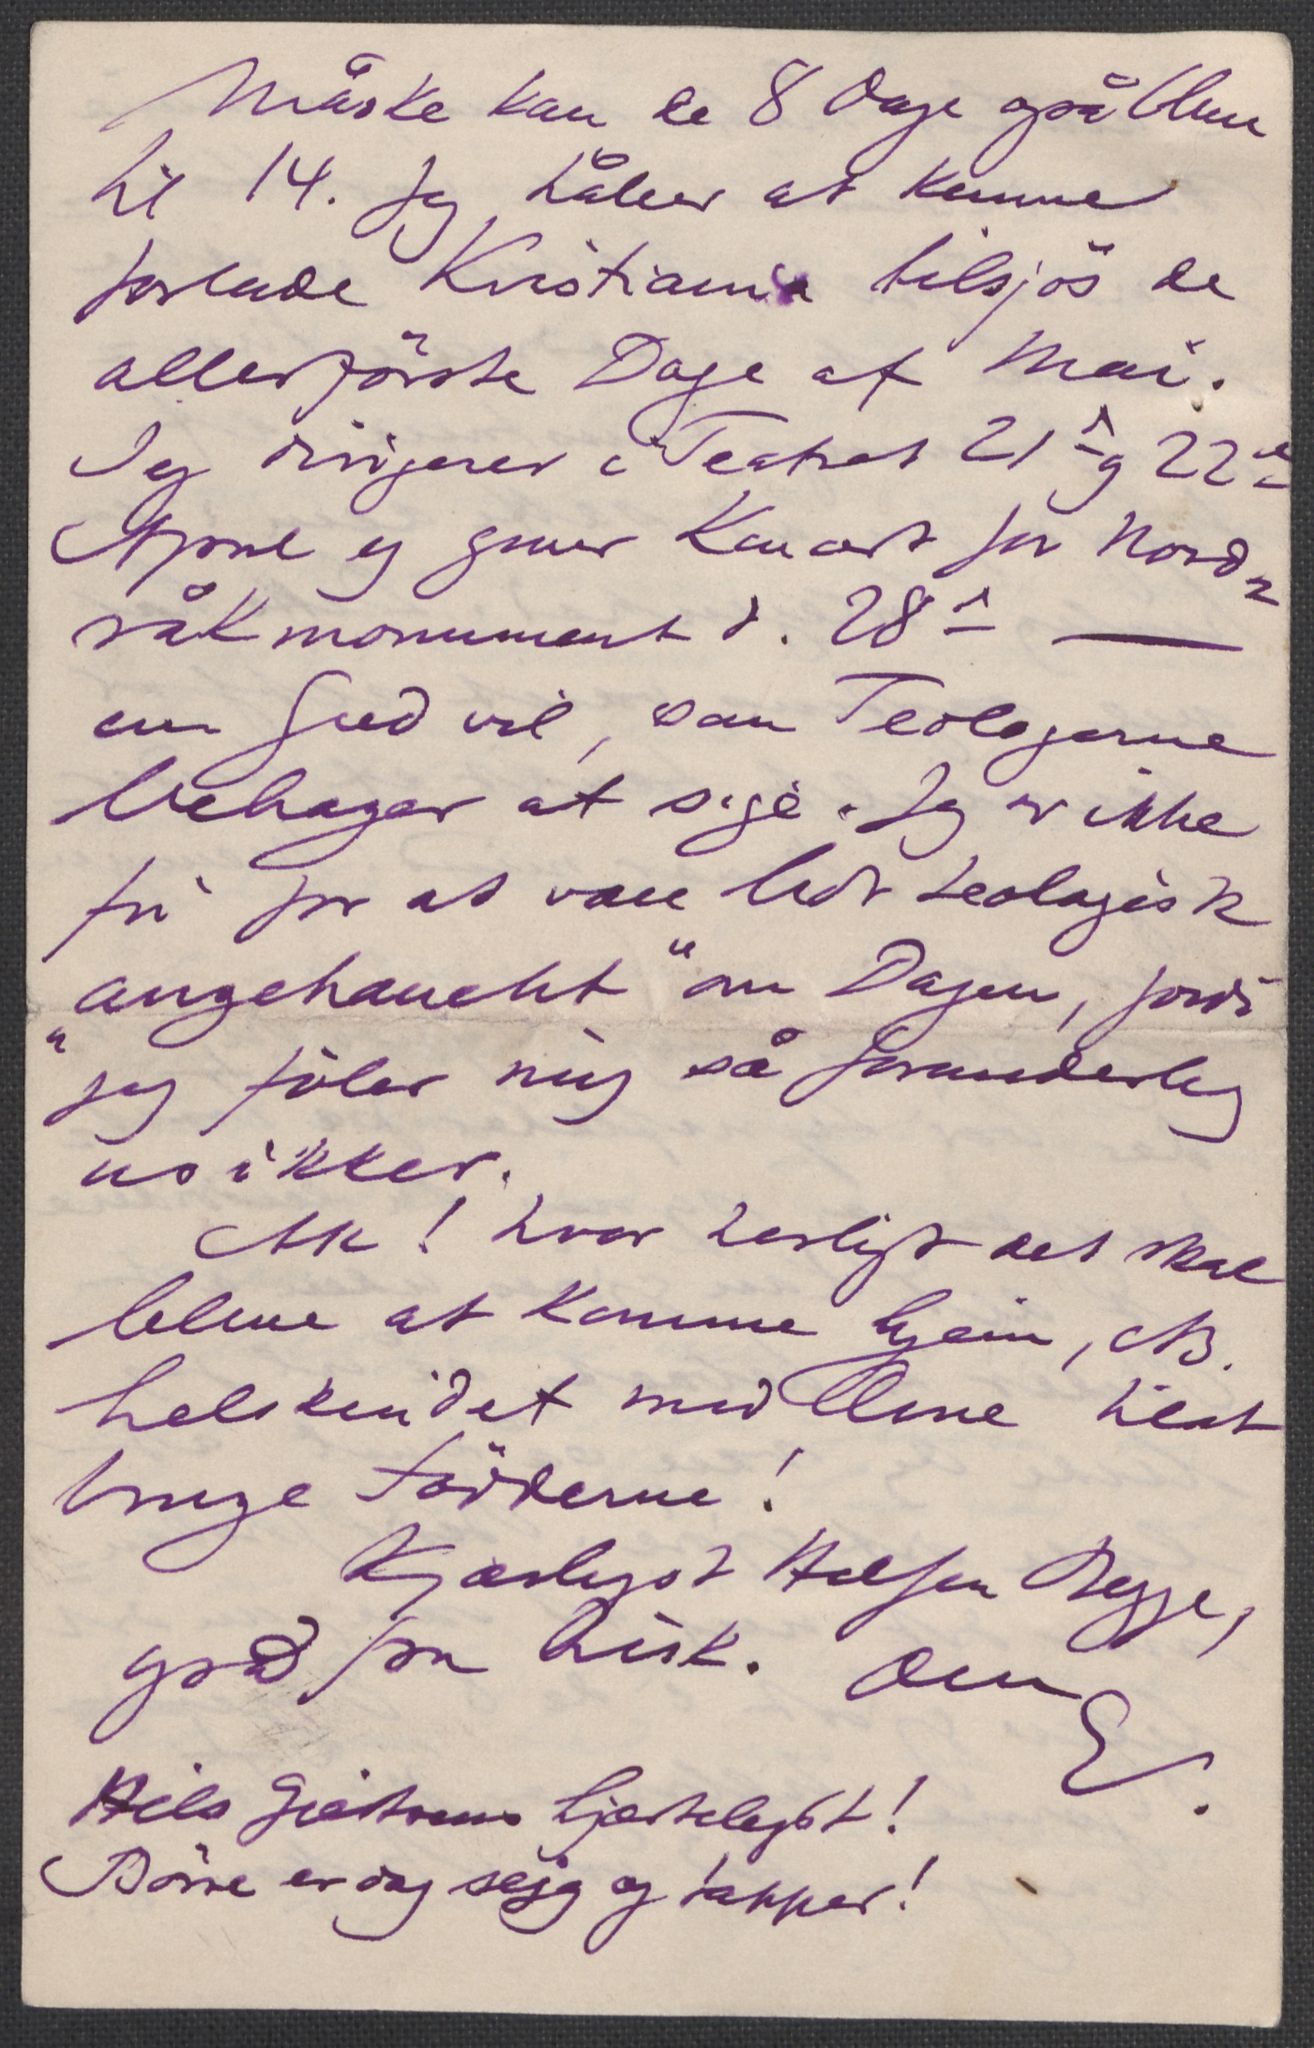 Måske kan de 8 Dage også blive
til 14. Jeg håber at kunne
forlade Kristiania tilsjös de
allerförste Dage af Mai.
Jeg dirigerer i Teatret 21de og 22de
April og giver Koncert for Nord-
råkmonument d. 28de —
om Gud vil, som Teologerne
behager at sige. Jeg er ikke
fri for at være lidt teologisk
„angehaucht" om Dagen, fordi
jeg föler mig så forunderlig
usikker.
Ak! hvor herligt det skal
blive at komme hjem, NB.
helskindet med Evne til at
bruge Födderne!
Kjærligst Hilsen Begge,
også fra Lisk. Din
E.
Hils hjærteligst!
Börre er dog sejg og tapper!